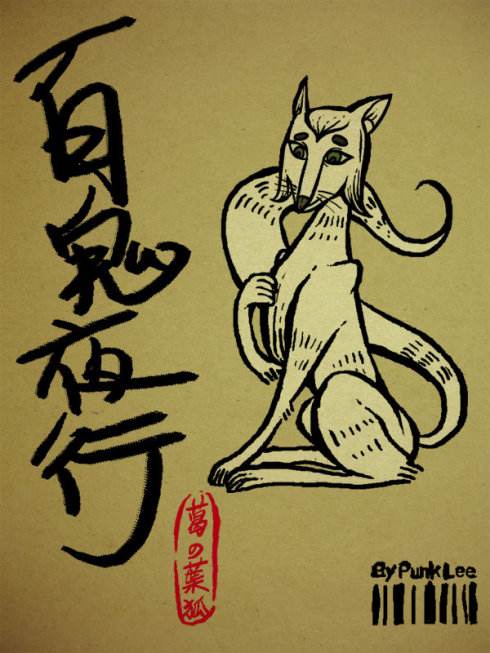 百鬼夜行
葛の葉狐
By Punk Lee